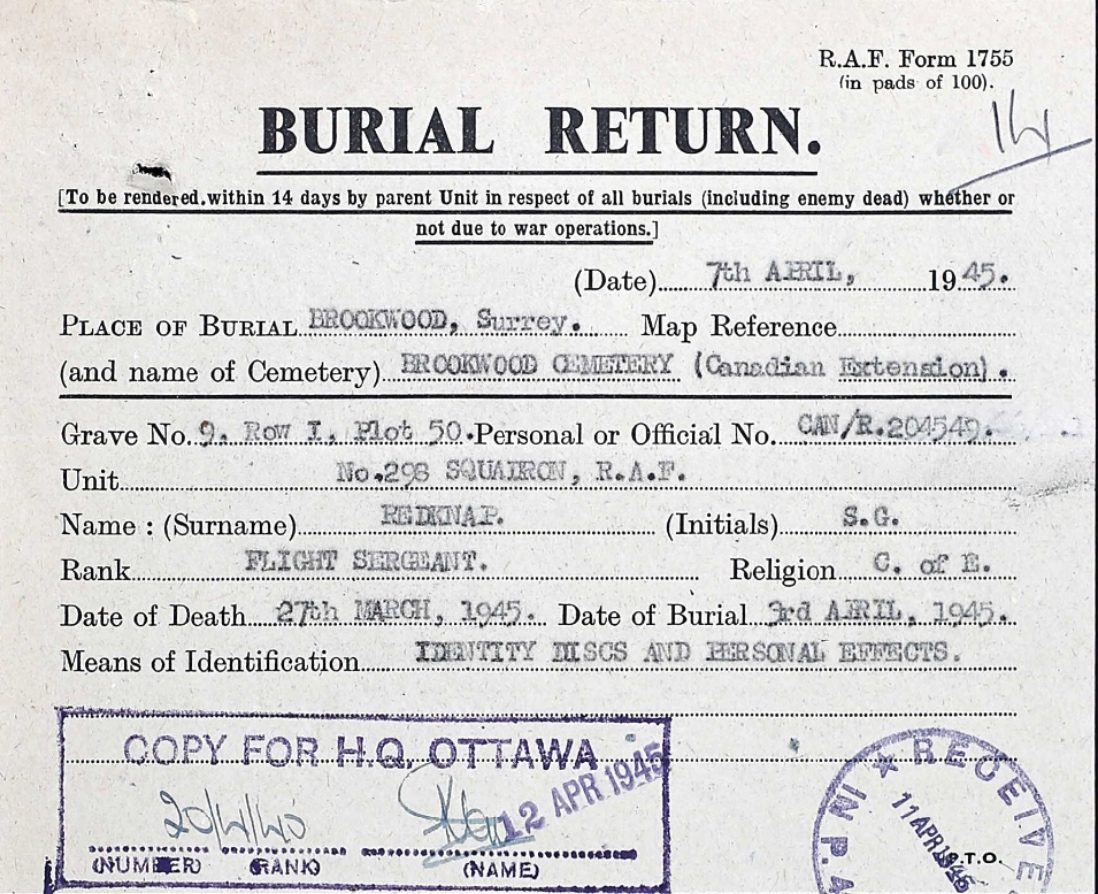 R.A.F. Form 1755
(in pads of 100).
14
BURIAL RETURN.
[To be rendered within 14 days by parent Unit in respect of all burials (including enemy dead) whether or
not due to war operations.]
(Date) 7th APRIL, 1945.
PLACE OF BURIAL BROOKWOOD, Surrey. Map Reference
(and name of Cemetery) BROOKWOOD CEMETERY (Canadian Extension).
Grave No. 9. Row I, Plot 50. Personal or Official No. CAN/R.204549.
Unit No.298 SQUADRON, R.A.F.
Name : (Surname) REDKNAP. (Initials) S.G.
Rank FLIGHT SERGEANT. Religion C. of E.
Date of Death 27th MARCH, 1945. Date of Burial 3rd APRIL, 1945.
Means of Identification IDENTITY DISCS AND PERSONAL EFFECTS.
COPY FOR H.Q. OTTAWA
12 APR 1945
(NUMBER) (RANK) (NAME)
★ RECEIVE
IN P.A
11 APR 1945
P.T.O.